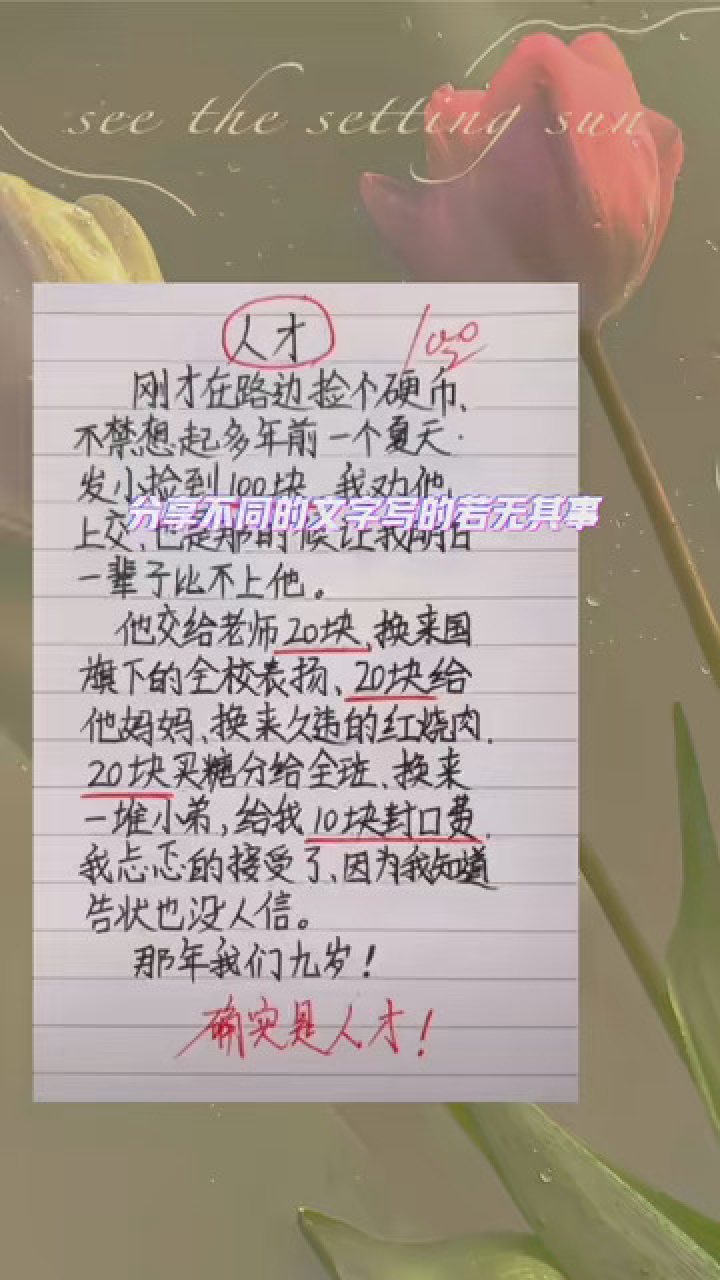 see the setting sun
人才
100
刚才在路边捡个硬币、
不禁想起多年前一个夏天.
发小捡到100块、我劝他
分享不同的文字写的若无其事
上交、也是那时候让我明白
一辈子比不上他。
他交给老师20块、换来国
旗下的全校表扬、20块给
他妈妈、换来久违的红烧肉.
20块买糖分给全班、换来
一堆小弟,给我10块封口费.
我忐忑的接受了、因为我知道
告状也没人信。
那年我们九岁!
确实是人才!